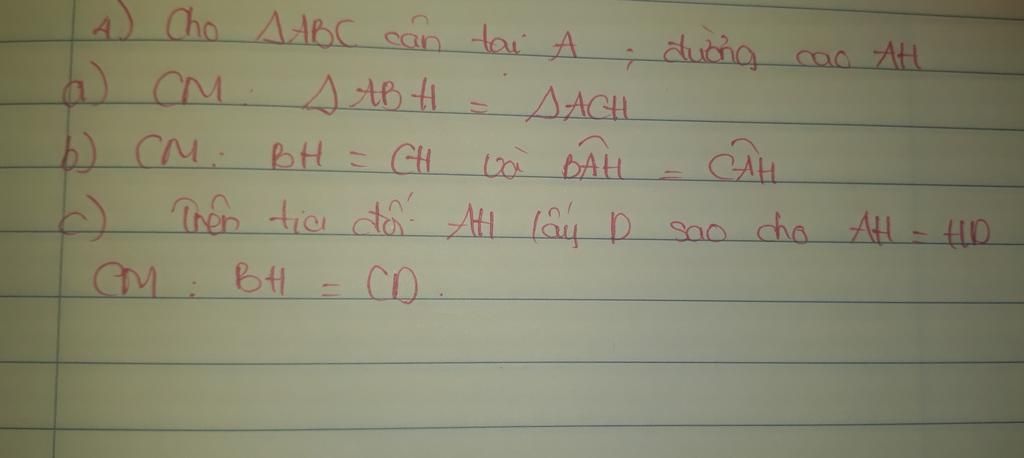 4) Cho ΔABC cân tại A ; đường cao AH
a) CM : ΔABH = ΔACH
b) CM : BH = CH và B̂AH = ĈAH
c) Trên tia đối AH lấy D sao cho AH = HD
CM : BH = CD.